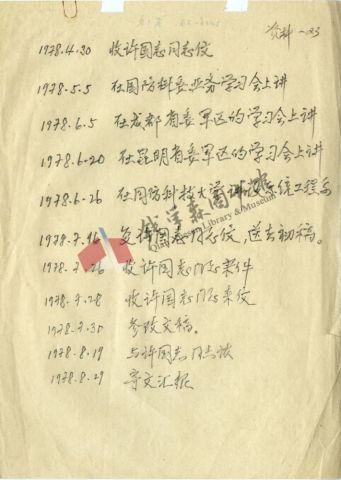 资料-23
1978.4.30 收许国志同志信
1978.5.5 在国防科委业务学习会上讲
1978.6.5 在成都省委军区的学习会上讲
1978.6.20 在昆明省委军区的学习会上讲
1978.6.26 在国防科技大学讲设系统工程系
1978.7.16 复许国志同志信,送去初稿。
钱学森图书馆
Qian Xuesen Library & Museum
1978.7.26 收许国志同志来件
1978.7.28 收许国志同志来信
1978.7.30 修改文稿。
1978.8.19 与许国志同志谈
1978.8.29 寄文汇报